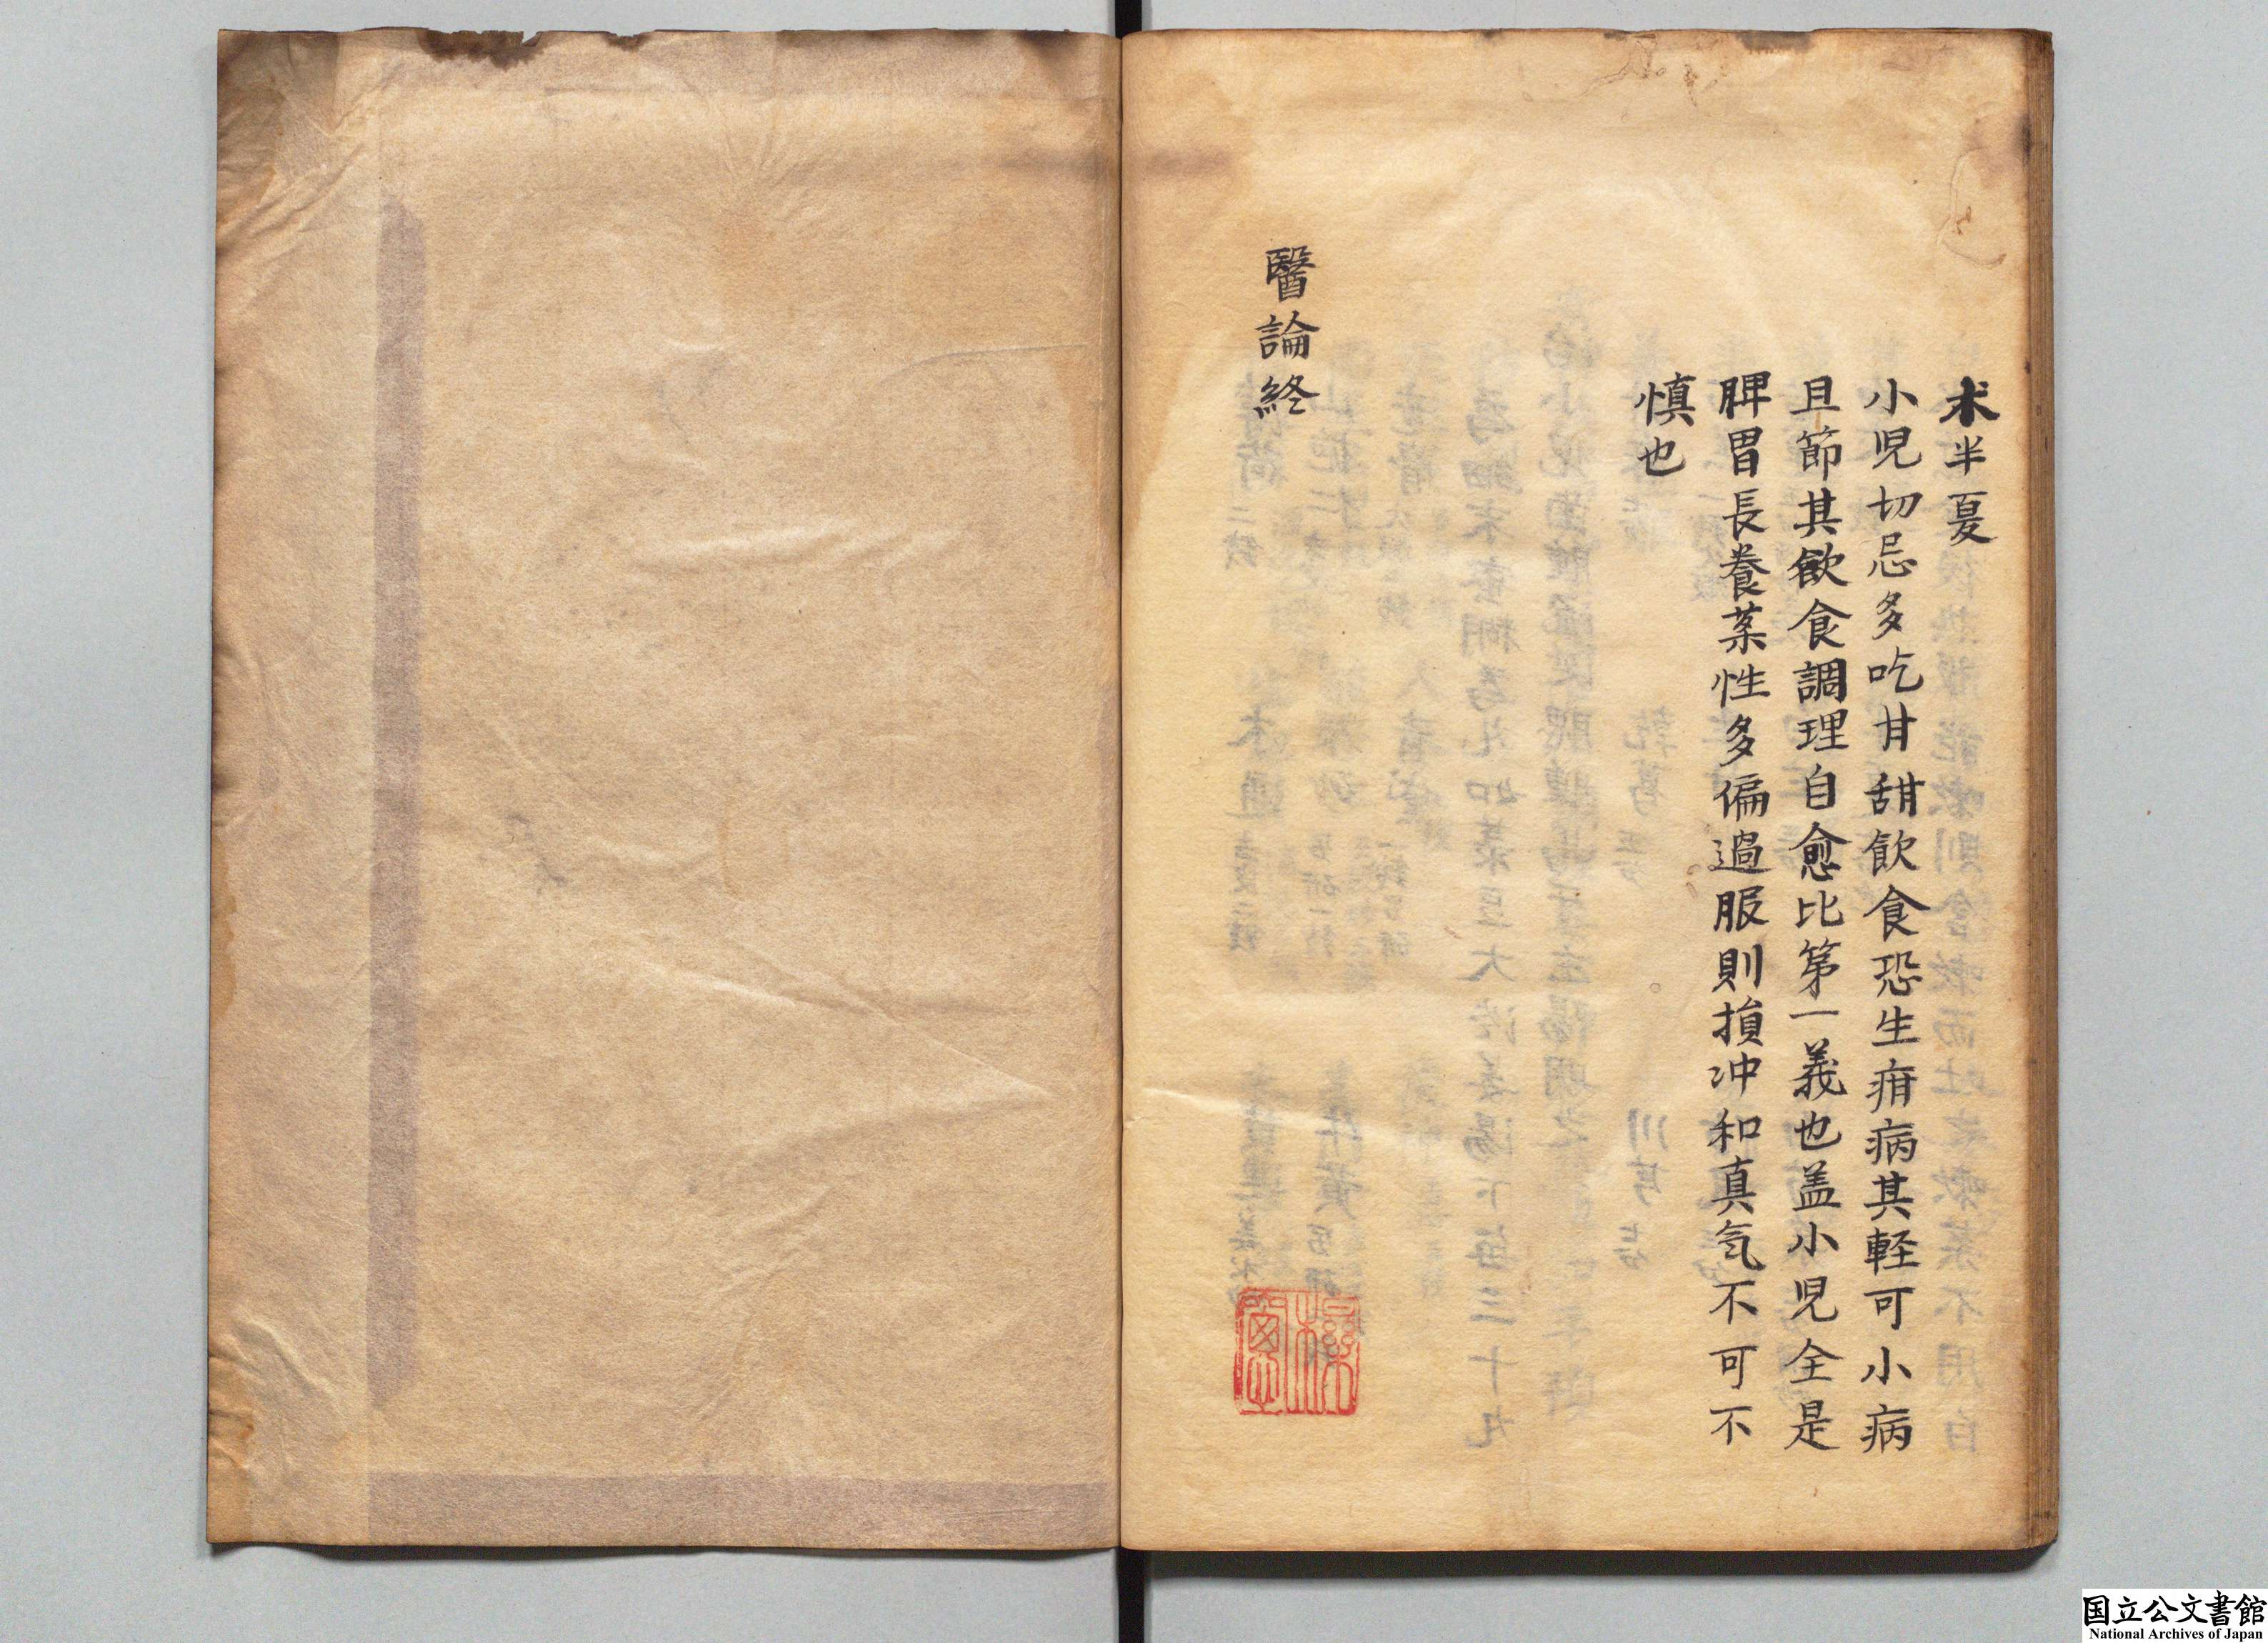 术半夏
小児切忌多吃甘甜飲食恐生疳病其軽可小病
且節其飲食調理自愈比第一義也盖小児全是
脾胃長養薬性多偏過服則損冲和真気不可不
慎也
醫論終
国立公文書館
National Archives of Japan